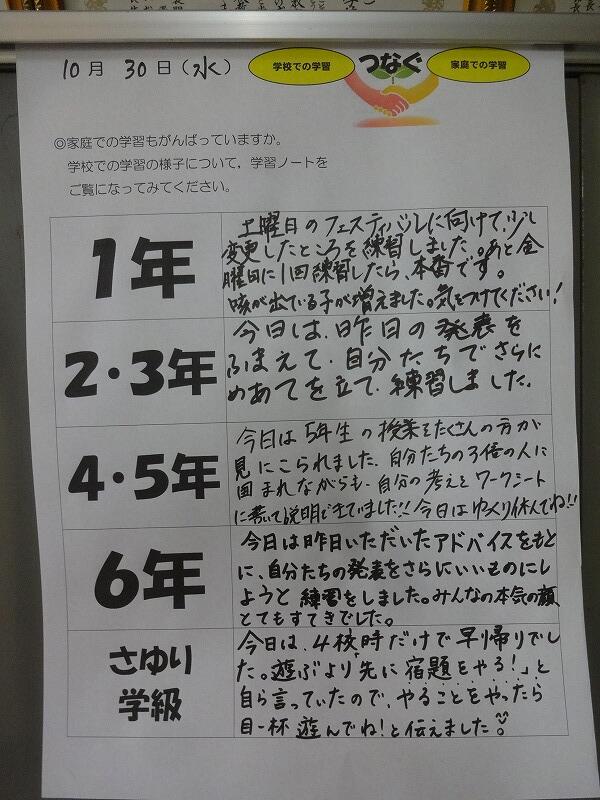 10月 30日(水)
学校での学習 つなぐ 家庭での学習
◎家庭での学習もがんばっていますか。
学校での学習の様子について，学習ノートを
ご覧になってみてください。
1年
土曜日のフェスティバルに向けて、少し
変更したところを練習しました。あと金
曜日に1回練習したら、本番です。
咳が出ている子が増えました。気をつけてください！
2・3年
今日は、昨日の発表を
ふまえて、自分たちでさらに
めあてを立て、練習しました。
4・5年
今日は5年生の授業をたくさんの方が
見にこられました。自分たちの3倍の人に
囲まれながらも、自分の考えをワークシート
に書いて説明できていました!!今日はゆっくり休んでね!!
6年
今日は昨日いただいたアドバイスをもと
に、自分たちの発表をさらにいいものにし
ようと練習をしました。みんなの本気の顔
とてもすてきでした。
さゆり
学級
今日は、4校時だけで早帰りでし
た。「遊ぶより先に宿題をやる！」と
自ら言っていたので、やることをやったら
目一杯遊んでね！と伝えました。